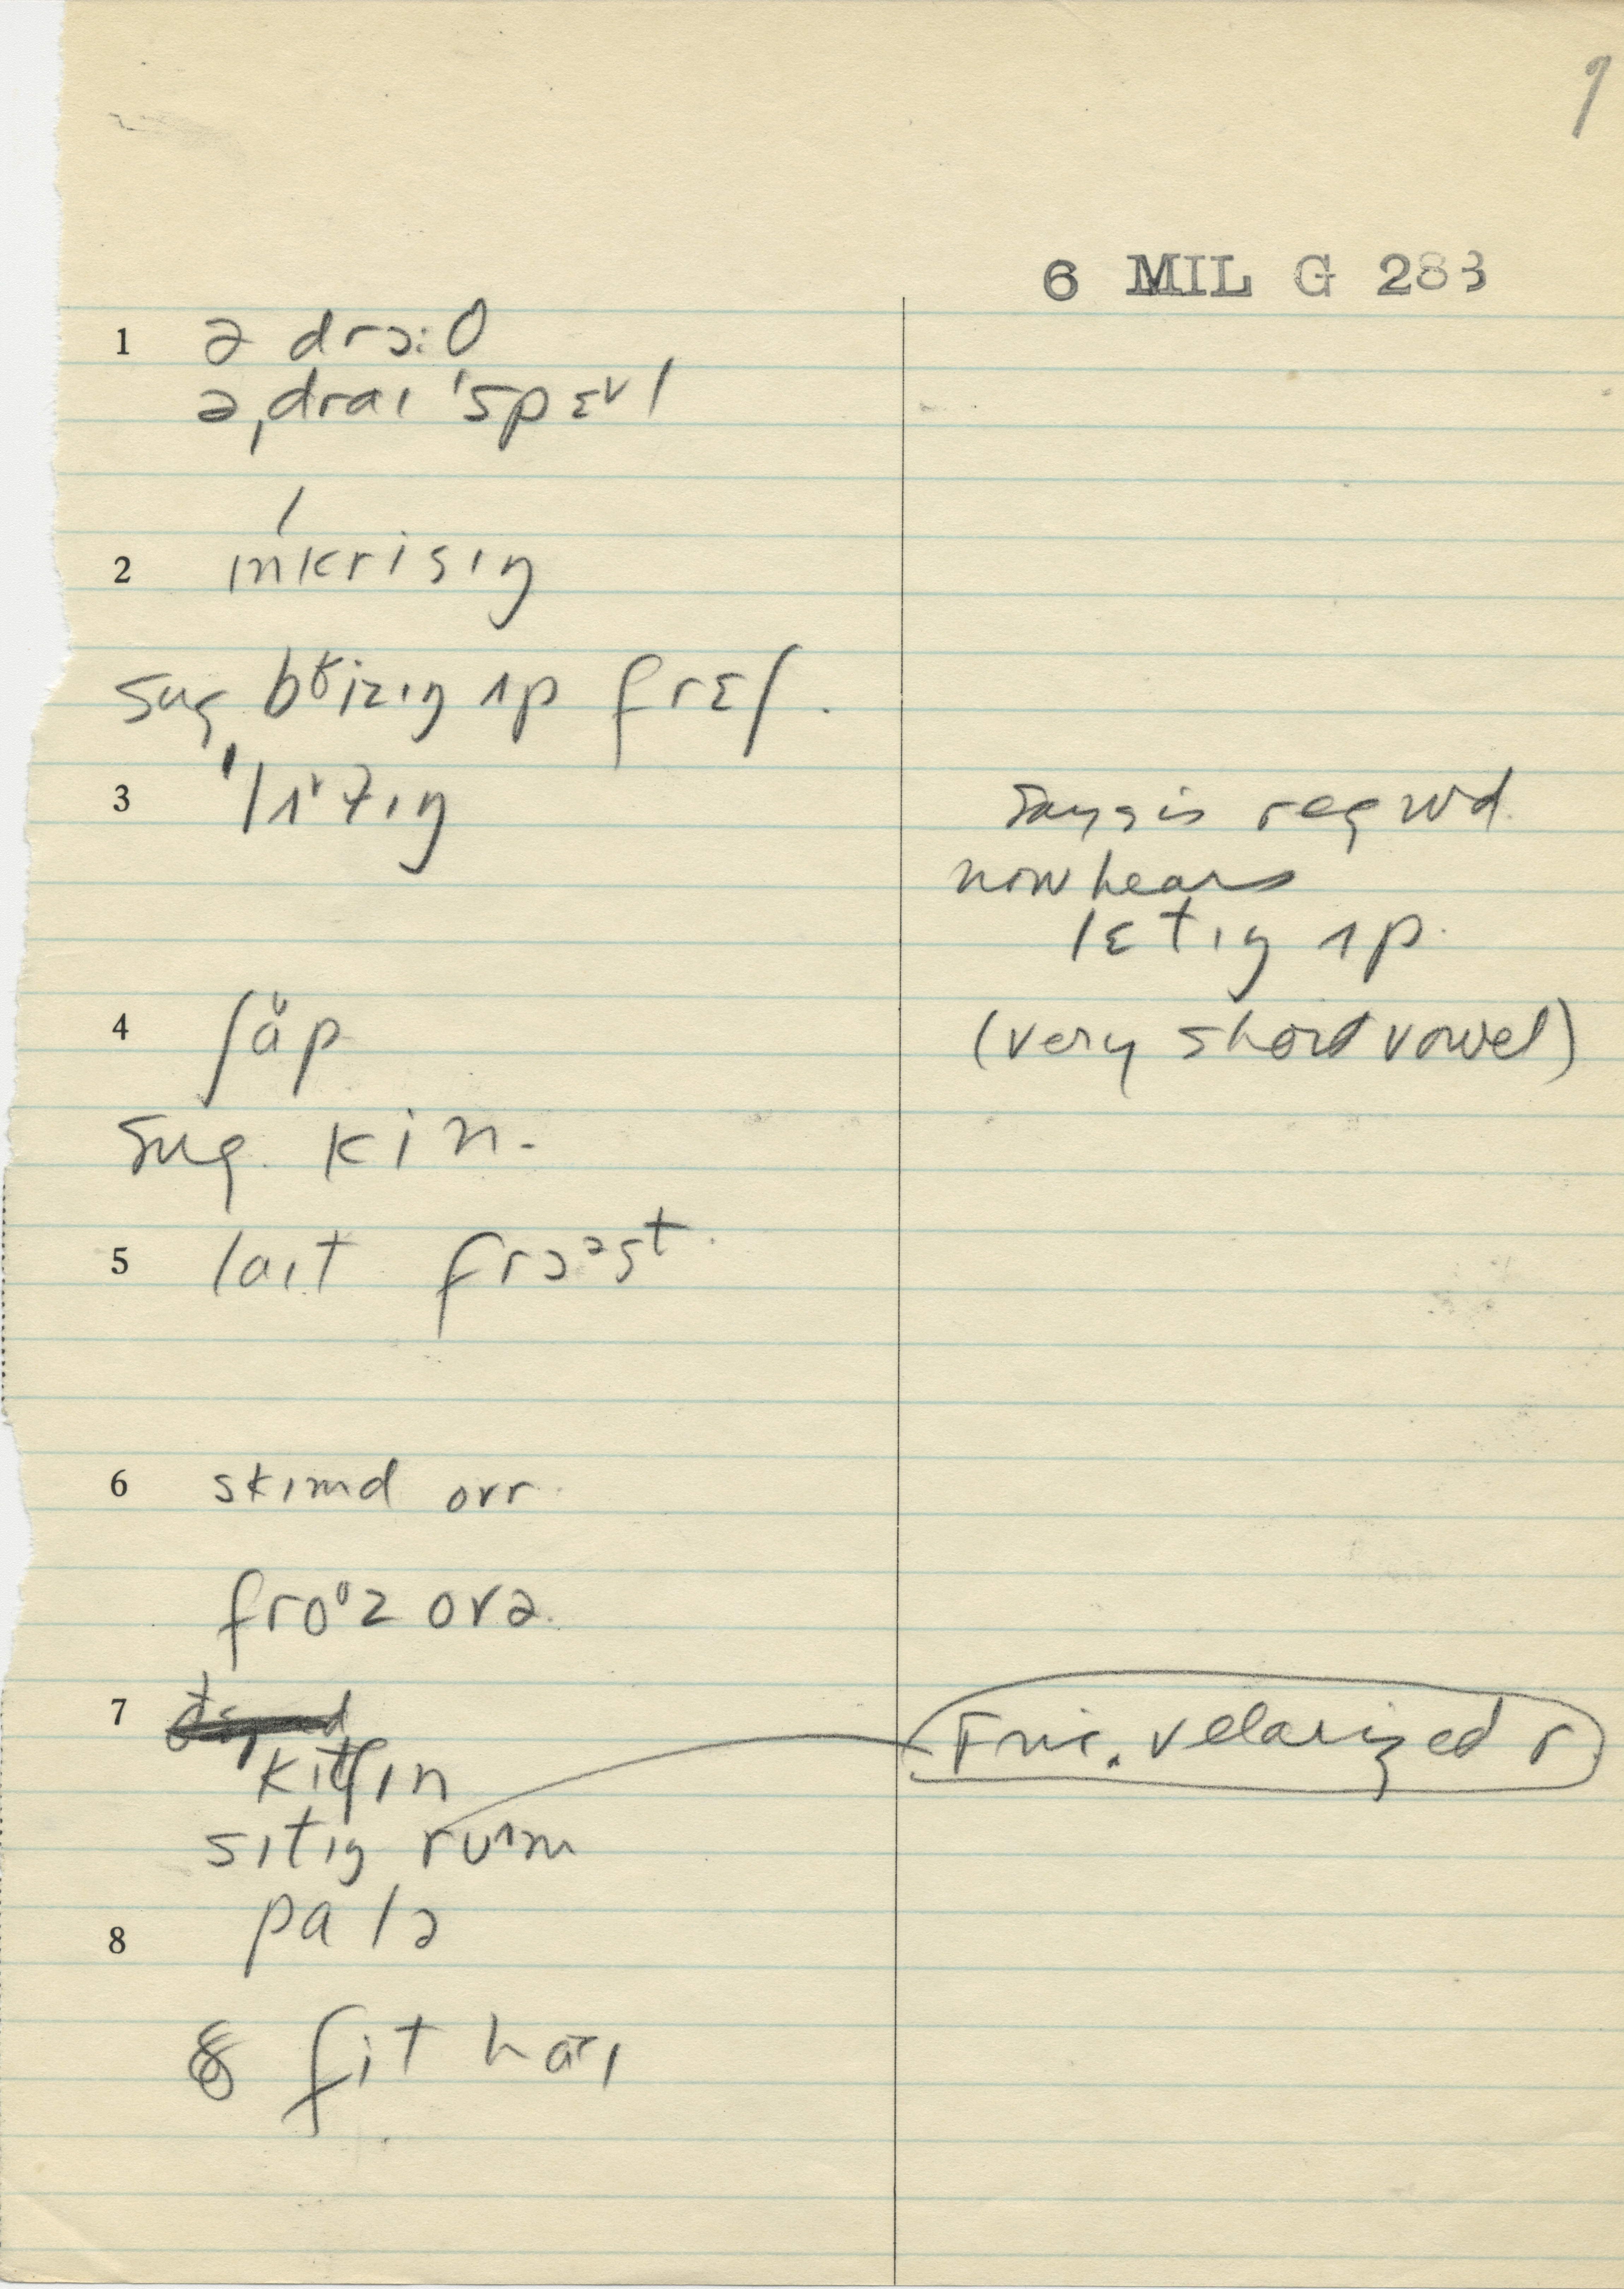 9
6 MIL G 283
1 ə drɔ:θ
ə ˌdraɪ ˈspɛᵛl
2 ˈɪnkrisɪŋ
sug. bʳizɪŋ ʌp frɛʃ.
3 says is reg wd.
now hears
lɛtɪŋ ʌp.
4 ʃaᵘp (very short vowel)
sug. kin.
5 laɪt frɔᵊst.
6 skɪmd ovr.
froᶷz ovə.
7 kɪtʃɪn Fric. velarized r
sɪtɪŋ ruᶺm
8 palə
8 fit haɪ